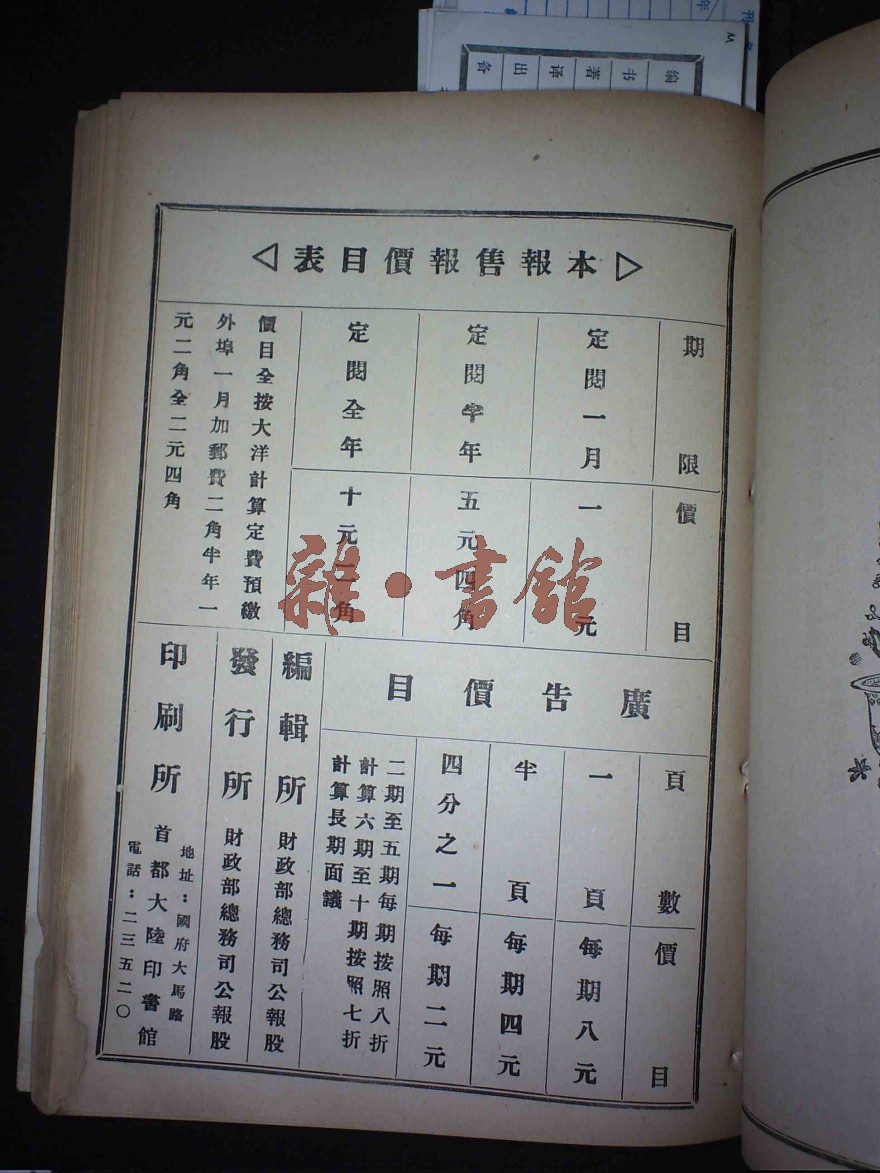 編 书 著 译 出 备
▷本報售報價目表◁
期限
價目
定閱一月
一元
定閱半年
五元四角
定閱全年
十元二角
價目全按大洋計算定費預繳
外埠一月加郵費二角半年一
元二角全二元四角
廣告價目
頁數
價目
一頁
每期八元
半頁
每期四元
四分之一
每期二元
二期至五期每期按照八折
計算六期至十期按照七折
計算長期面議
編輯所 財政部總務司公報股
發行所 財政部總務司公報股
印刷所 首都大陸印書館
地址：國府大馬路
電話：二三五二〇
雜·書館